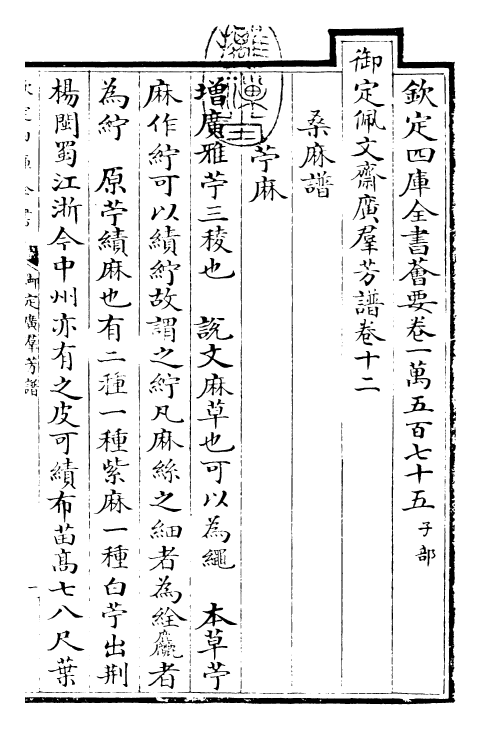 欽定四庫全書薈要卷一萬五百七十五 子部
御定佩文齋廣羣芳譜卷十二
桑麻譜
苧麻
增廣雅苧三稜也 說文麻草也可以為繩 本草苧
麻作紵可以績紵故謂之紵凡麻絲之細者為絟麤者
為紵 原苧績麻也有二種一種紫麻一種白苧出荆
楊閩蜀江浙今中州亦有之皮可績布苗高七八尺葉
御定廣羣芳譜
一